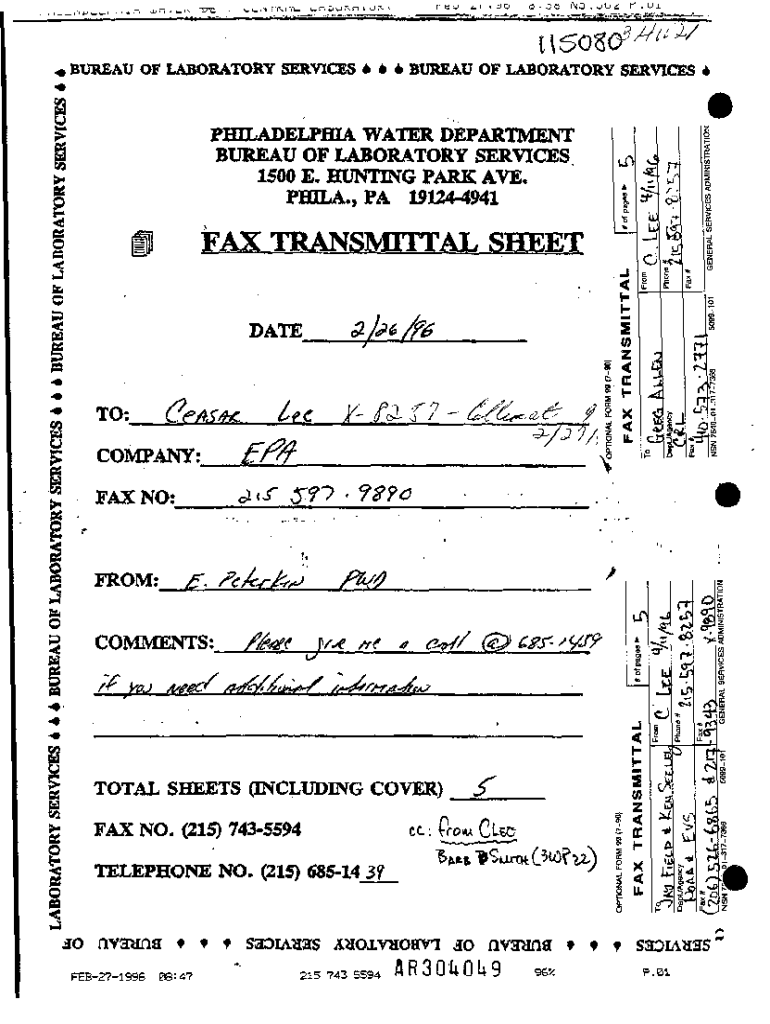 115080
BUREAU OF LABORATORY SERVICES ♦ ♦ ♦ BUREAU OF LABORATORY SERVICES ♦
PHILADELPHIA WATER DEPARTMENT
BUREAU OF LABORATORY SERVICES
1500 E. HUNTING PARK AVE.
PHILA., PA 19124-4941
FAX TRANSMITTAL SHEET
DATE 2/26/96
TO: CEASAR Lee X-8257 -
COMPANY: EPA
FAX NO: 215 597-9890
FROM: E. Peterkin PWD
COMMENTS: Please give me a call @ 685-1459
if you need additional information
TOTAL SHEETS (INCLUDING COVER) 5
FAX NO. (215) 743-5594
cc: from CLEO
TELEPHONE NO. (215) 685-14 39
BARB SMITH (3WP22)
LABORATORY SERVICES ♦ ♦ ♦ BUREAU OF LABORATORY SERVICES ♦ ♦ ♦ BUREAU OF LABORATORY SERVICES ♦
SERVICES ♦ ♦ ♦ BUREAU OF LABORATORY SERVICES ♦ ♦ ♦ BUREAU OF
OPTIONAL FORM 99 (7-90)
FAX TRANSMITTAL
# of pages ▶ 5
To GREG ALLEN
From C. LEE 4/11/96
Dept/Agency CRL
Phone # 215-597-8257
Fax # 410-573-2771
Fax #
NSN 7540-01-317-7368 5099-101 GENERAL SERVICES ADMINISTRATION
OPTIONAL FORM 99 (7-90)
FAX TRANSMITTAL
# of pages ▶ 5
To JAY FIELD & KEN SEELEY
From C LEE 4/11/96
Dept/Agency NOAA & EVS
Phone # 215-597-8257
Fax # (206) 526-6865 & 217-9343
Fax # X-9890
5099-101 GENERAL SERVICES ADMINISTRATION
FEB-27-1996 08:47 215 743 5594 AR304049 96% P.01